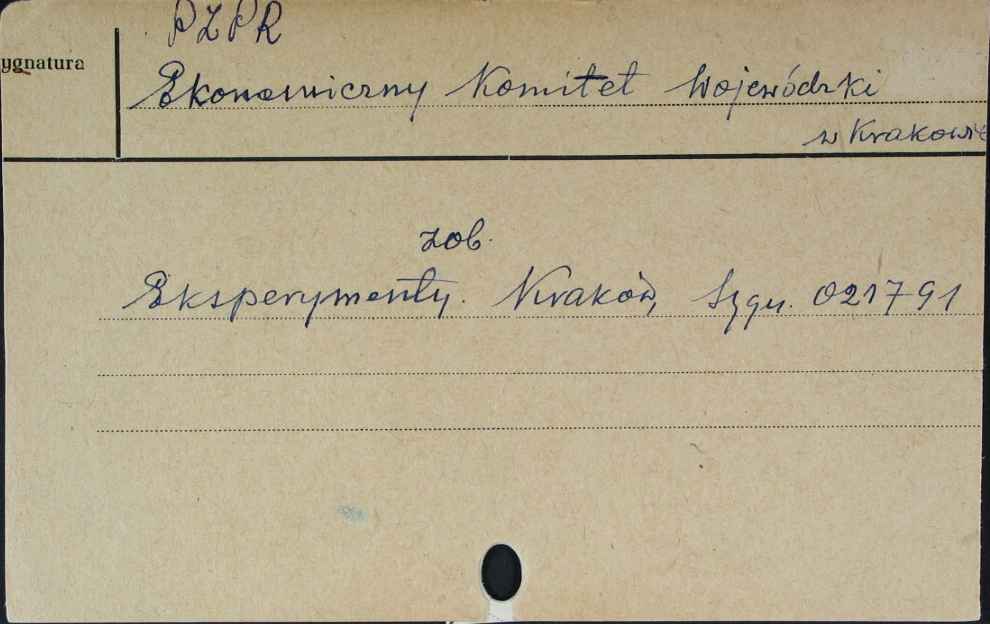 PZPR
ygnatura
Ekonomiczny Komitet Wojewódzki
w Krakowie
zob.
Eksperymenty. Kraków, Sygn. 021791